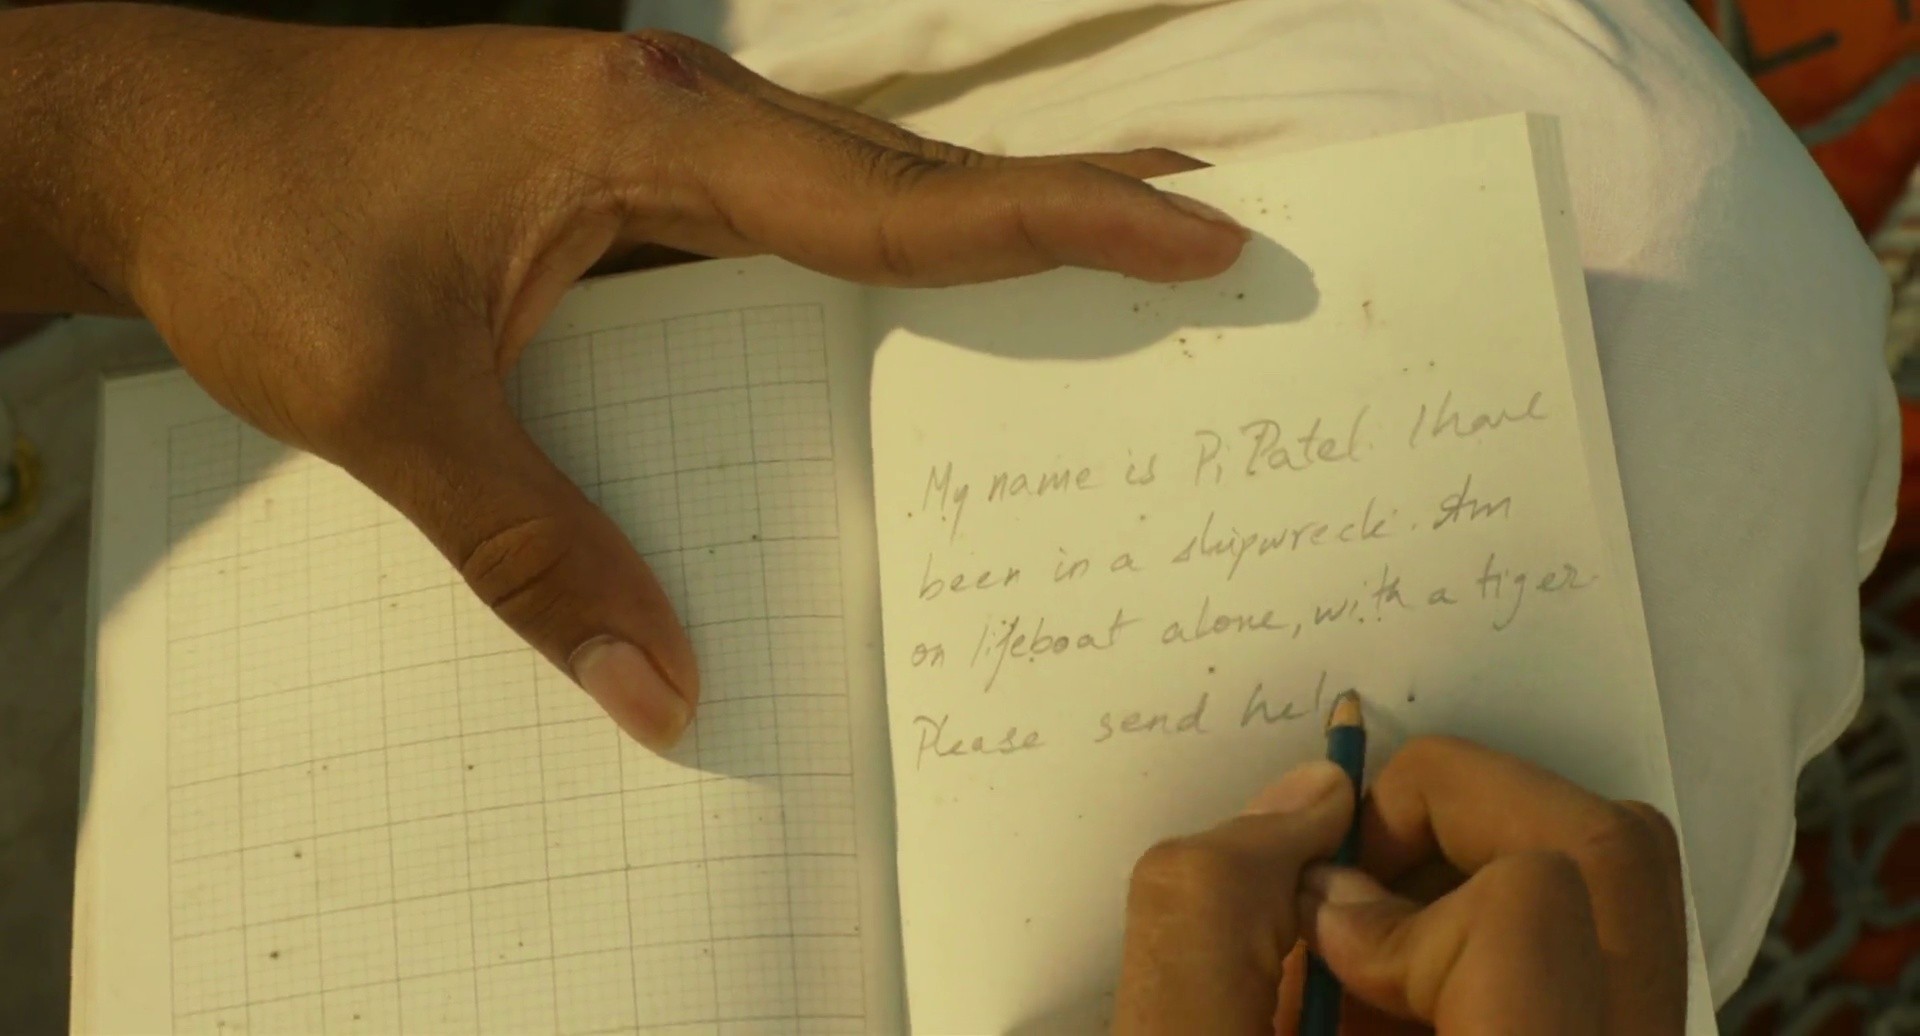 My name is Pi Patel. I have
been in a shipwreck. Am
on lifeboat alone, with a tiger.
Please send help